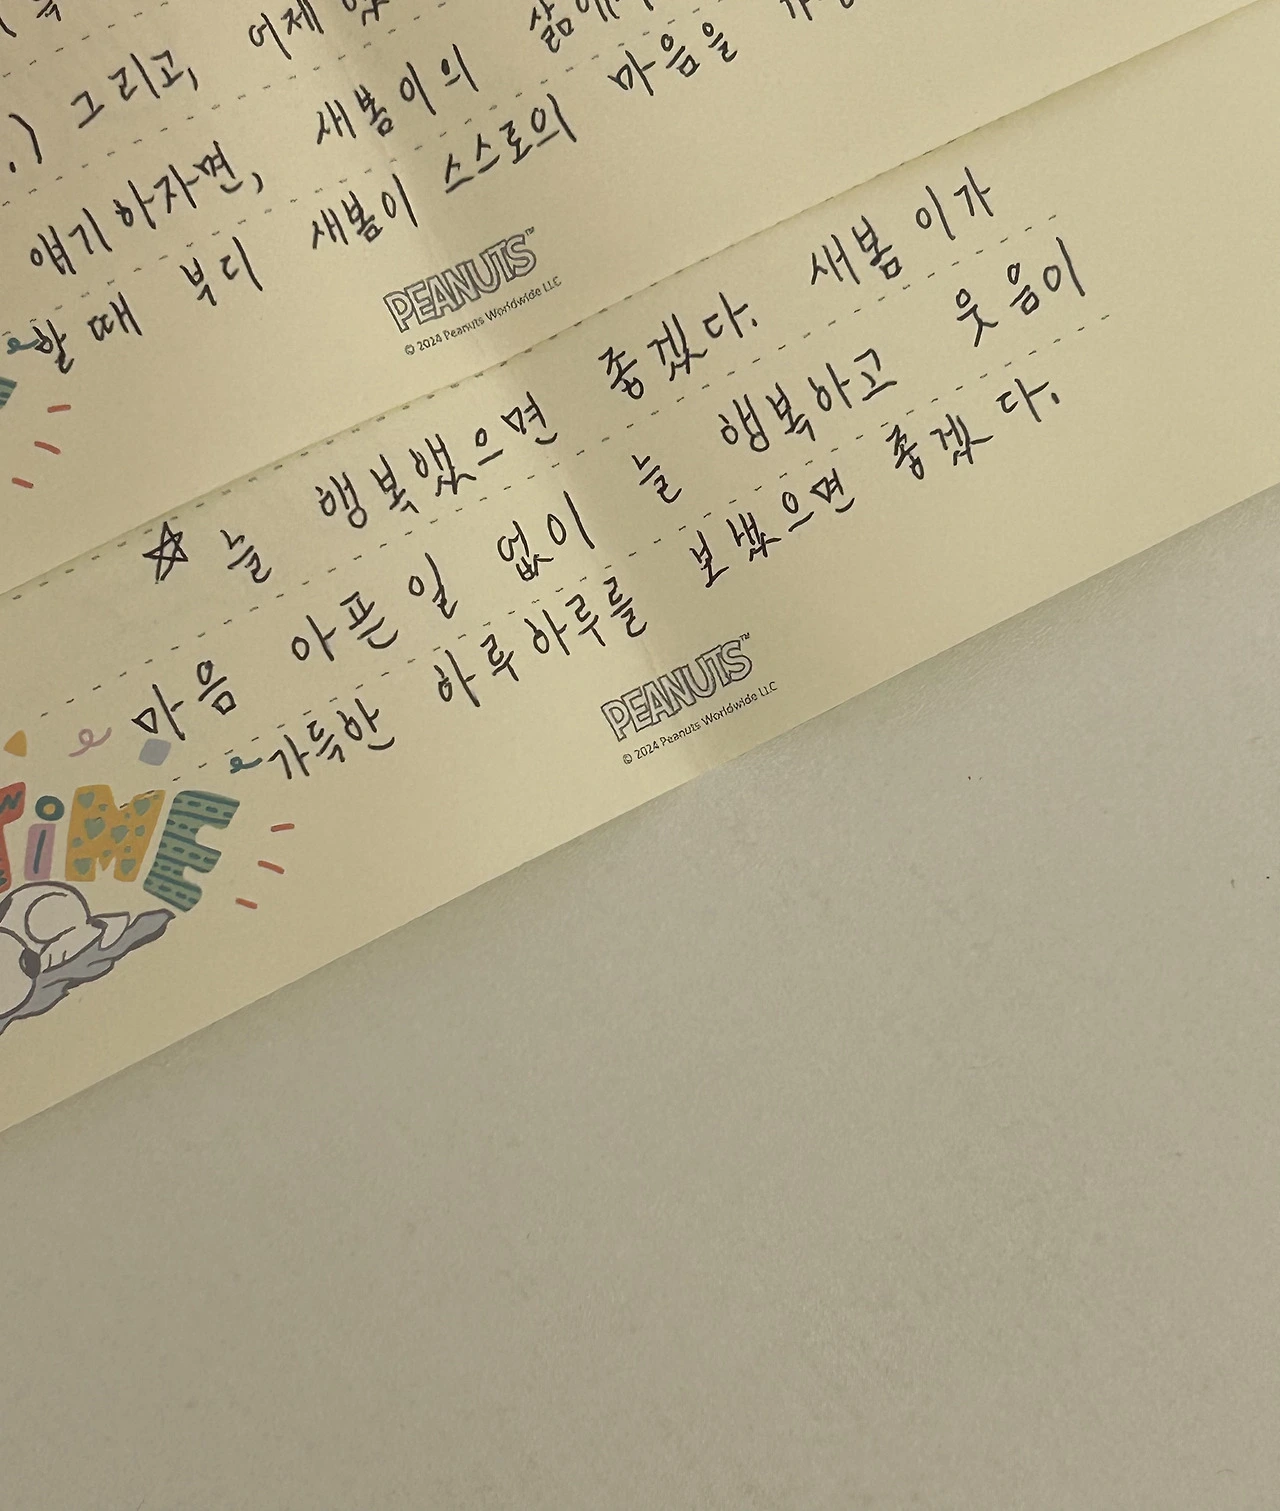 그리고, 어제
얘기하자면, 새봄이의
할 때 부디 새봄이 스스로의 마음을
PEANUTS™
© 2024 Peanuts Worldwide LLC
☆ 늘 행복했으면 좋겠다. 새봄이가
마음 아픈 일 없이 늘 행복하고 웃음이
가득한 하루하루를 보냈으면 좋겠다.
TiME
PEANUTS™
© 2024 Peanuts Worldwide LLC